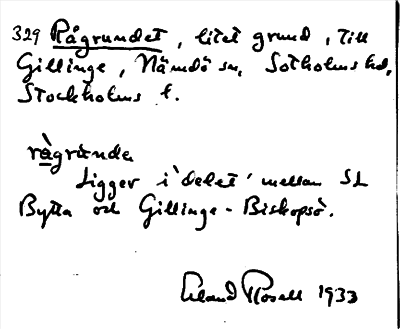 329 Rågrundet, litet grund, till
Gillinge, Nämdö sn, Sotholms hd,
Stockholms l.
rågrùnda
Ligger i 'delet' mellan St
Bytta och Gillinge - Biskopsö.
Erland Rosell 1933